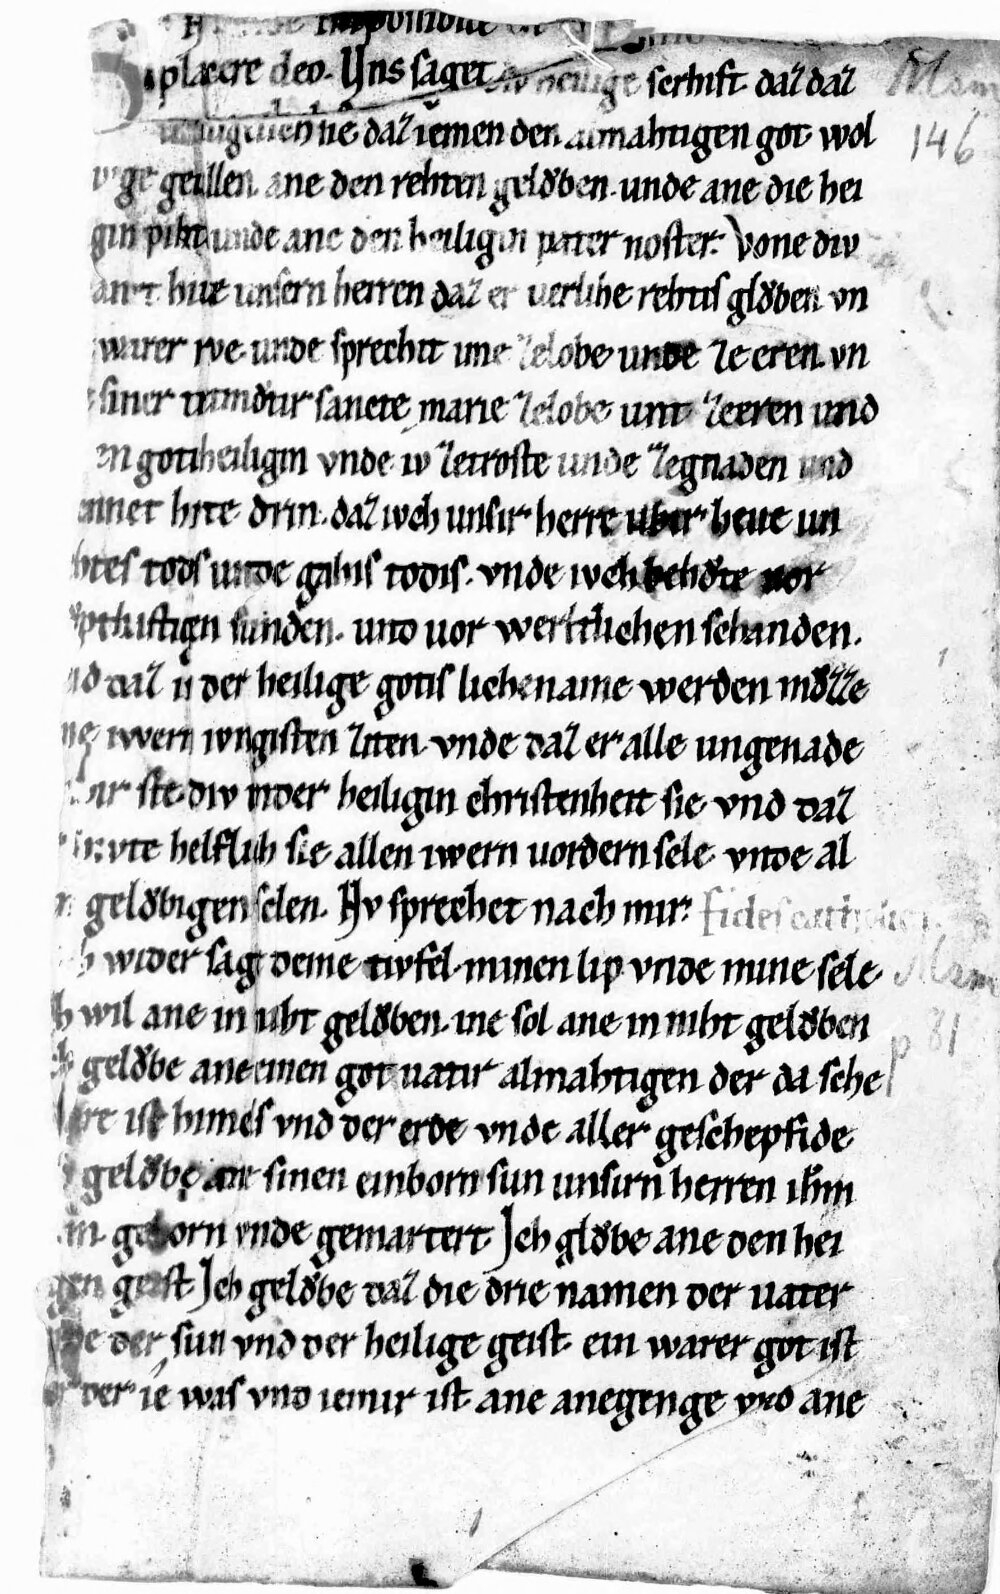 impossibile est
placere deo. Uns saget div heilige scrhift daz daz
ne daz iemen den almahtigen got wol
ge geullen. ane den rehten gelŏben. unde ane die hei
gin piht unde ane den heiligin pater noster. Vone div
unsern herren daz er uerlihe rehtis glŏben. vn
warer rve. unde sprechit ime zelobe unde zeeren. vn
siner trutmŏtir sancte marie zelobe unt zeeren und
en gotisheiligin vnde iv zetroste unde zegnaden und
hvte drin. daz iwch unsir herre ubir heue un
htes tods unde gahis todis. vnde iwch behŏte uor
hpthaftigen sunden. und uor werltlichen schanden.
nd daz ij der heilige gotis lichename werden mŏzze
iwern iungisten ziten. vnde daz er alle ungenade
ste. div inder heiligin christenheit sie vnd daz
hvte helflich sie allen iwern uordern sele. vnde al
gelŏbigen selen. Nv sprechet nach mir. fides catholica.
h wider sag deme tivfel. minen lip vnde mine sele
h wil ane in niht gelŏben. ine sol ane in niht gelŏben
ch gelŏbe ane einen got uatir almahtigen der da sche
fare ist himels vnd der erde vnde aller geschepfide
gelŏbe ane sinen einborn sun unsirn herren ihm
geborn vnde gemartert Jch glŏbe ane den hei
gen geist Jch gelŏbe daz die drie namen der uater
der sun vnd der heilige geist. ein warer got ist
der ie was vnd iemir ist ane anegenge vnd ane
146
p 81